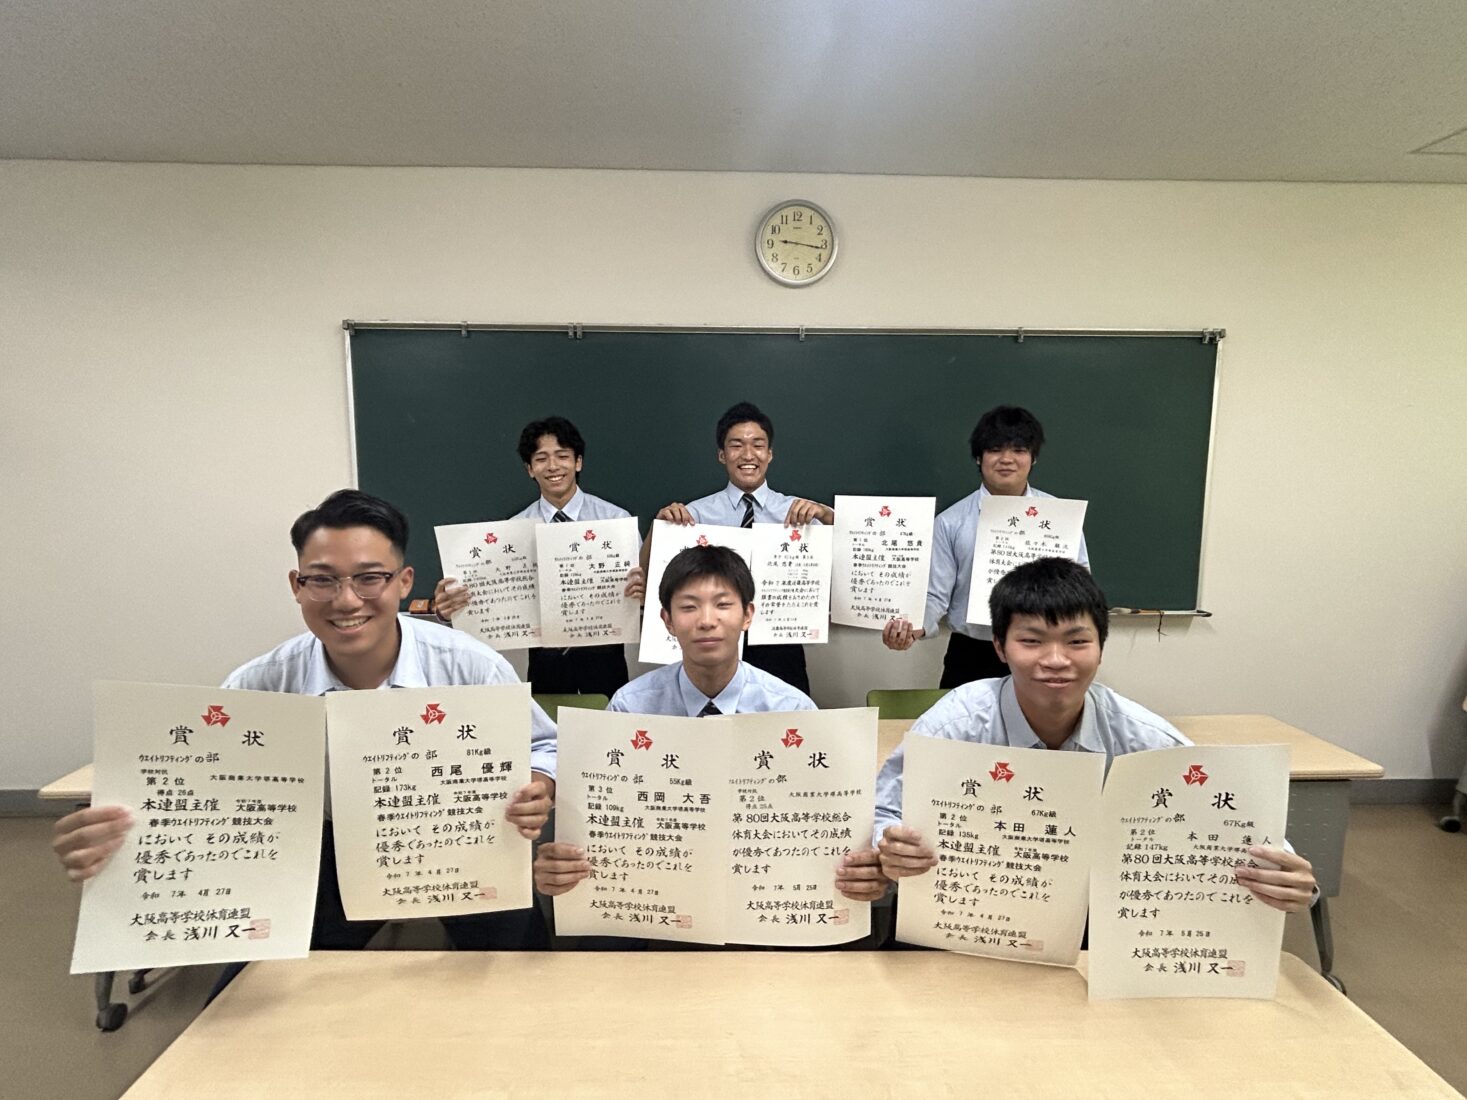 賞 状
ウエイトリフティングの部
学校対抗
第2位 大阪商業大学堺高等学校
得点 26点
本連盟主催 令和7年度 大阪高等学校
春季ウエイトリフティング競技大会
において その成績が
優秀であったのでこれを
賞します
令和 7年 4月 27日
大阪高等学校体育連盟
会長 浅川 又一
賞 状
ウエイトリフティングの部 81Kg級
第2位 西尾 優輝
トータル 大阪商業大学堺高等学校
記録 173kg
本連盟主催 令和7年度 大阪高等学校
春季ウエイトリフティング競技大会
において その成績が
優秀であったのでこれを
賞します
令和 7年 4月 27日
大阪高等学校体育連盟
会長 浅川 又一
賞 状
ウエイトリフティングの部 55Kg級
第3位 西岡 大吾
トータル 大阪商業大学堺高等学校
記録 109kg
本連盟主催 令和7年度 大阪高等学校
春季ウエイトリフティング競技大会
において その成績が
優秀であったのでこれを
賞します
令和 7年 4月 27日
大阪高等学校体育連盟
会長 浅川 又一
賞 状
ウエイトリフティングの部
学校対抗
第2位 大阪商業大学堺高等学校
得点 25点
第80回大阪高等学校総合
体育大会においてその成績
が優秀であったのでこれを
賞します
令和 7年 5月 25日
大阪高等学校体育連盟
会長 浅川 又一
賞 状
ウエイトリフティングの部 67Kg級
第2位 本田 蓮人
トータル 大阪商業大学堺高等学校
記録 135kg
本連盟主催 令和7年度 大阪高等学校
春季ウエイトリフティング競技大会
において その成績が
優秀であったのでこれを
賞します
令和 7年 4月 27日
大阪高等学校体育連盟
会長 浅川 又一
賞 状
ウエイトリフティングの部 67Kg級
第2位 本田 蓮人
トータル 大阪商業大学堺高
記録 147kg
第80回大阪高等学校総合
体育大会においてその成
が優秀であったのでこれを
賞します
令和 7年 5月 25日
大阪高等学校体育連盟
会長 浅川 又一
賞 状
大野 互
80回大阪高等学校総合
体育大会においてその成績
が優秀であったのでこれを
賞します
大阪高等学校体育連盟
会長 浅川 又一
賞 状
ウエイトリフティングの部
第1位 大野
本連盟主催 大阪高等学校
春季ウエイトリフティング競技大会
において その成績が
優秀であったのでこれを
賞します
大阪高等学校体育連盟
会長 浅川 又一
賞 状
北尾 悠貴
令和7年度近畿高等学校
賞 状
ウエイトリフティングの部
第1位 北尾 悠貴
本連盟主催 大阪高等学校
春季ウエイトリフティング競技大会
において その成績が
優秀であったのでこれを
賞します
大阪高等学校体育連盟
会長 浅川 又一
賞 状
佐々木
第80回大阪高等学校総
12 1 2 3 4 5 6 7 8 9 10 11